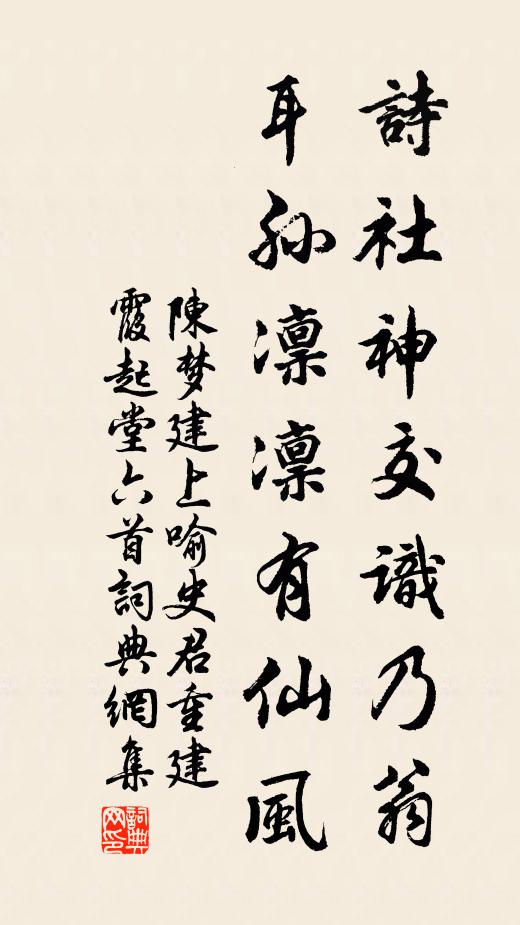 詩社神交識乃翁
耳孫凜凜有仙風
陳梦建上喻史君重建
霞起堂六首詞典網集
詞典
网印